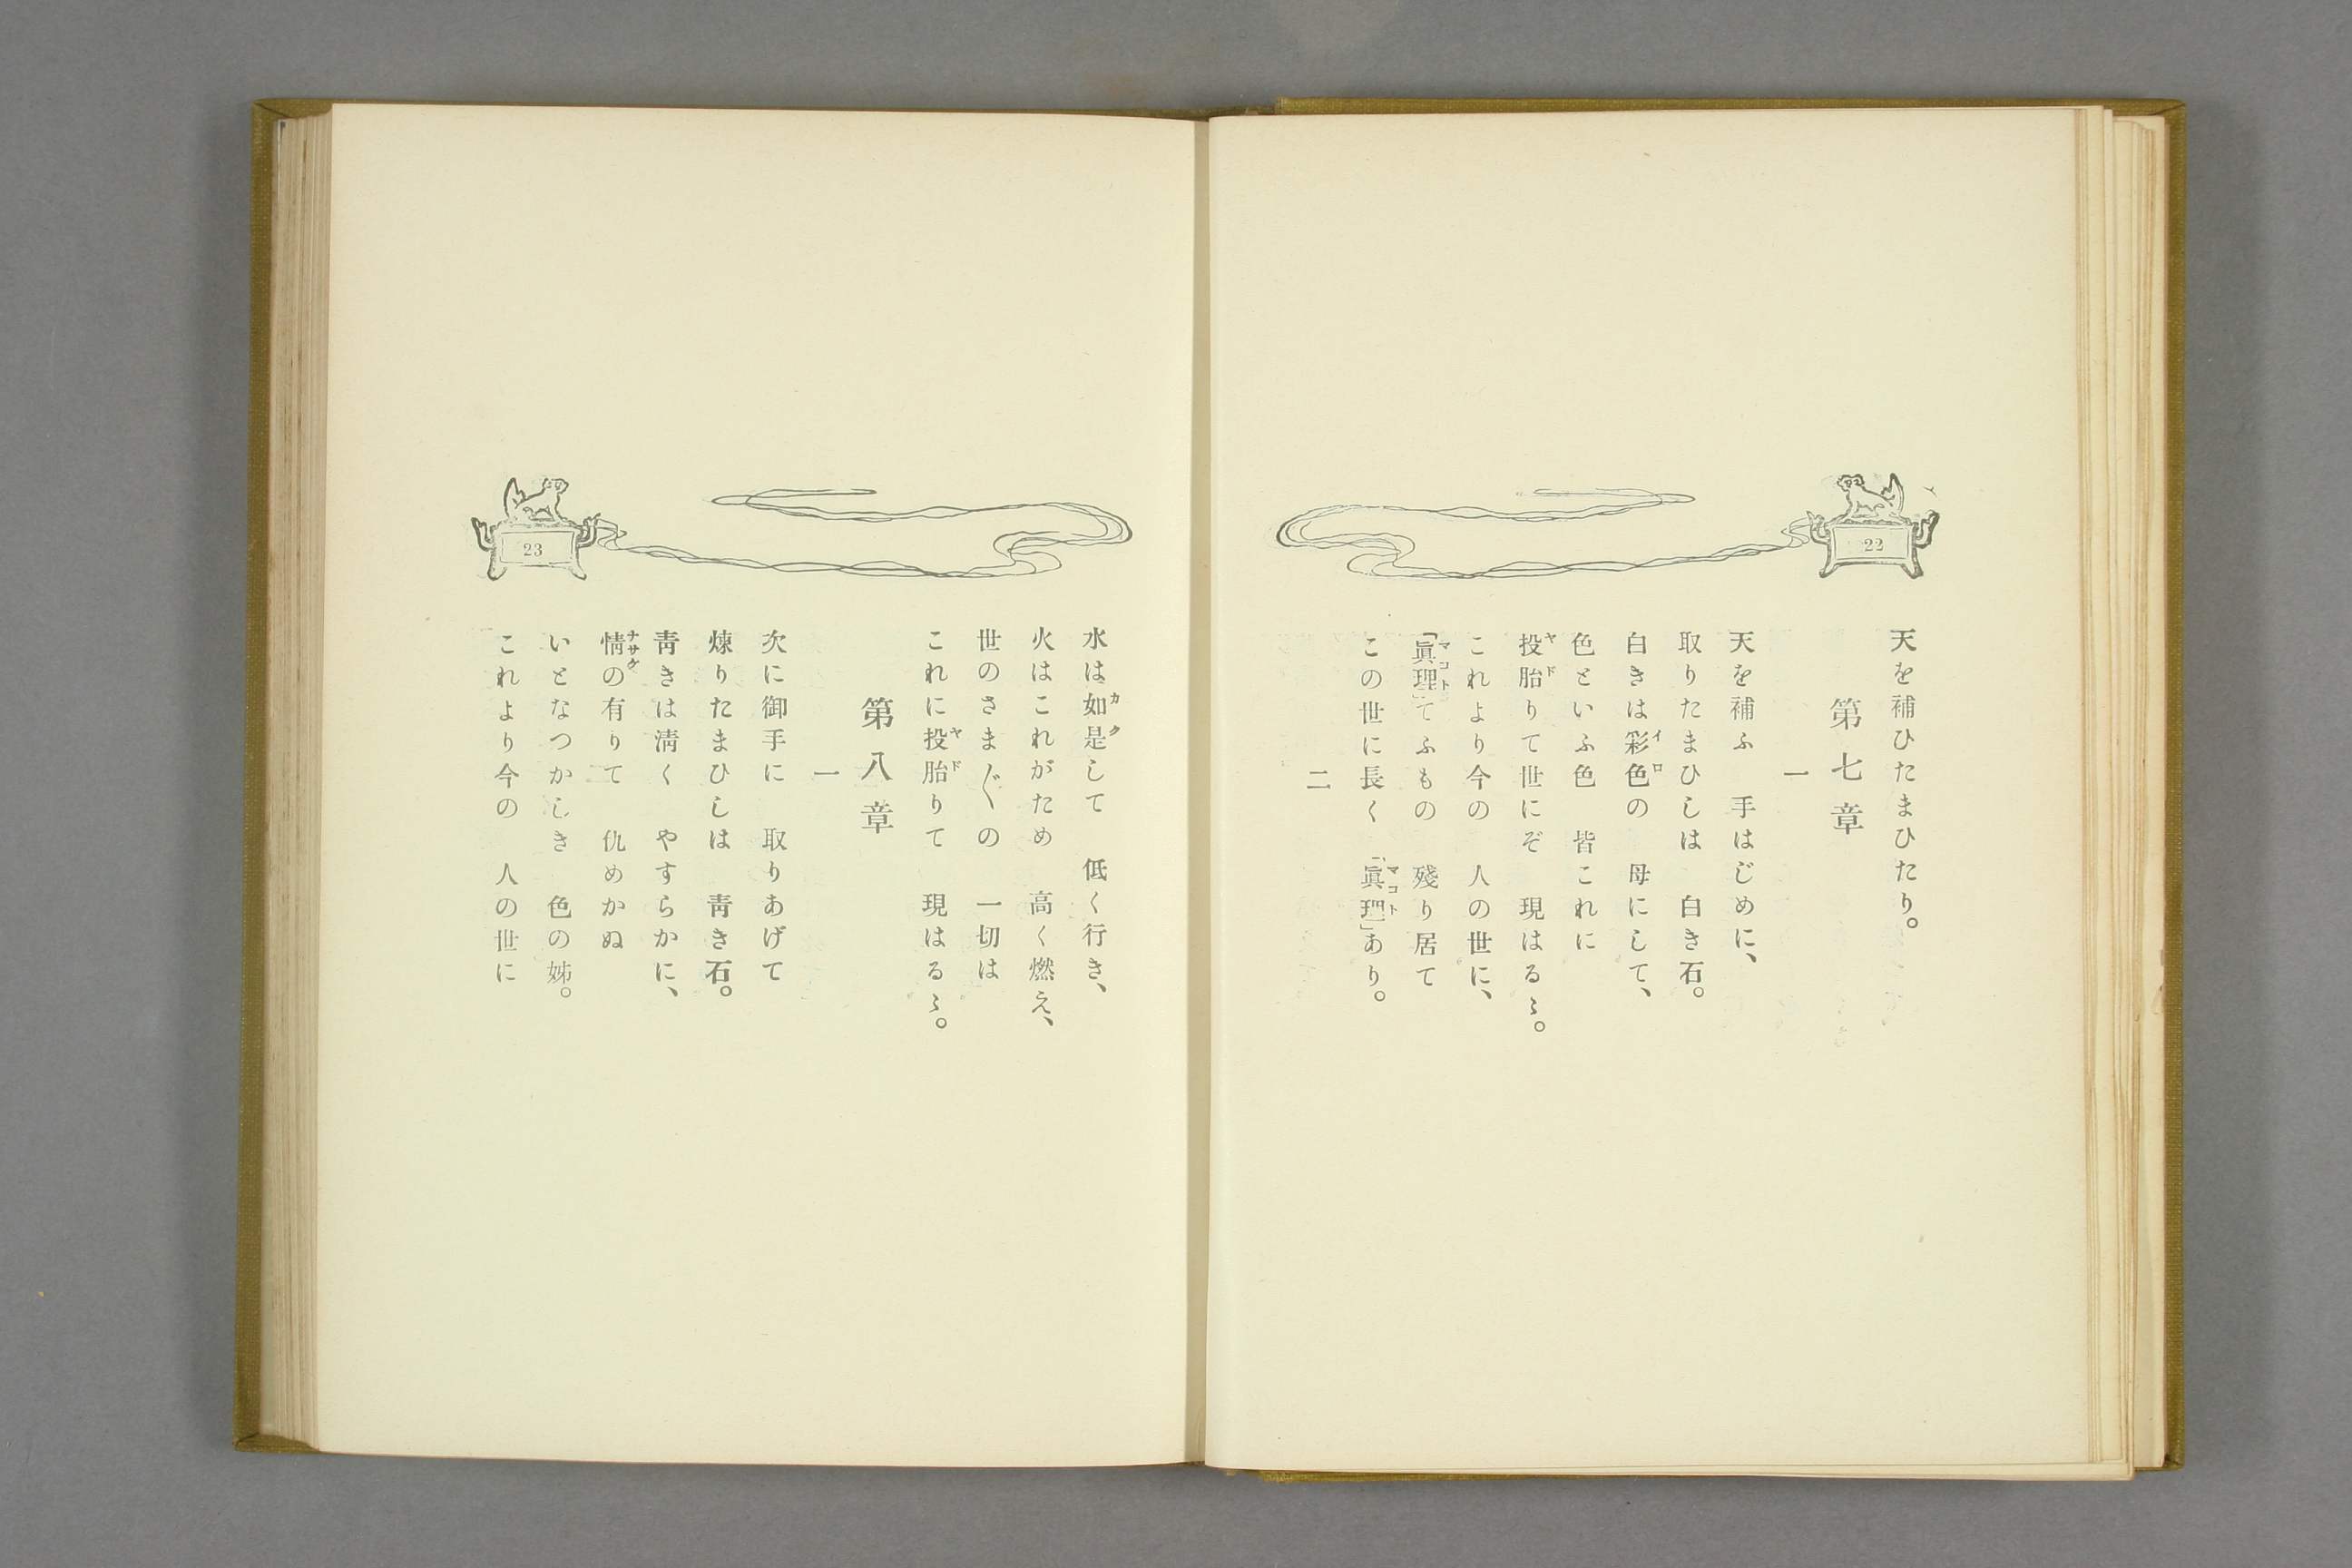 22
天を補ひたまひたり。
第七章
一
天を補ふ　手はじめに、
取りたまひしは　白き石。
白きは彩色の　母にして、
色といふ色　皆これに
投胎りて世にぞ　現はるゝ。
これより今の　人の世に、
「眞理」てふもの　殘り居て
この世に長く　「眞理」あり。
二
23
水は如是して　低く行き、
火はこれがため　高く燃え、
世のさま〴〵の　一切は
これに投胎りて　現はるゝ。
第八章
一
次に御手に　取りあげて
煉りたまひしは　靑き石。
靑きは淸く　やすらかに、
情の有りて　仇めかぬ
いとなつかしき　色の姊。
これより今の　人の世に